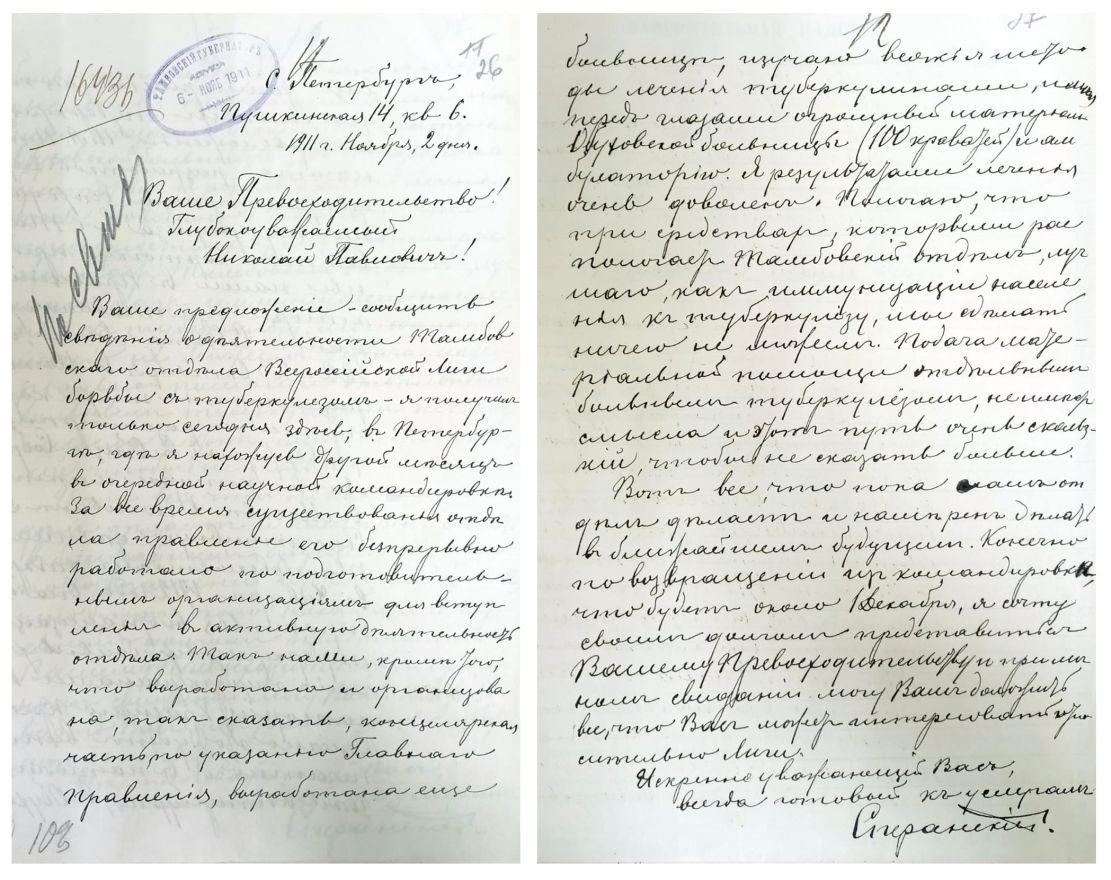 16436
ТАМБОВСКІЙ ГУБЕРНАТОРЪ
6 - НОЯБ 1911
26
С. Петербургъ,
Пушкинская 14, кв 6.
1911 г. Ноября, 2 дня.
Ваше Превосходительство!
Глубокоуважаемый
Николай Павловичъ!
Ваше предложеніе - сообщить
свѣдѣнія о дѣятельности Тамбов
скаго отдѣла Всероссійской Лиги
борьбы съ туберкулезомъ - я получилъ
только сегодня здѣсь, въ Петербур-
гѣ, гдѣ я нахожусь другой мѣсяцъ
въ очередной научной командировкѣ.
За все время существованія отдѣ
ла правленіе его безпрерывно
работало по подготовитель-
нымъ организаціямъ для вступ
ленія въ активную дѣятельность
отдѣла. Такъ нами, кромѣ того,
что выработана и организова
на, такъ сказать, канцелярская
часть по указанію Главнаго
Правленія, выработана еще
103
27
больницы, изучаю всякія мето-
ды леченія туберкулинами, имѣя
передъ глазами огромный матеріалъ
Обуховской больницы (100 кроватей) и ам
булаторію. Я результатами леченія
очень доволенъ. Полагаю, что
при средствахъ, которыми рас
полагаетъ Тамбовскій отдѣлъ, луч
шаго, какъ иммунизаціи населе
нія къ туберкулезу, мы сдѣлать
ничего не можемъ. Подача мате-
ріальной помощи отдѣльнымъ
больнымъ туберкулёзомъ, не имѣетъ
смысла и этотъ путь очень сколь-
зкій, чтобы не сказать больше.
Вотъ все, что пока нашъ от
дѣлъ дѣлаетъ и намѣренъ дѣлать
въ ближайшемъ будущемъ. Конечно
по возвращеніи изъ командировки,
что будетъ около 1 Декабря, я сочту
своимъ долгомъ представиться
Вашему Превосходительству и при лич
номъ свиданіи могу Вамъ доложить
все, что Васъ можетъ интересовать отно
сительно Лиги.
Искренно уважающій Васъ,
всегда готовый къ услугамъ
Сперанскій.